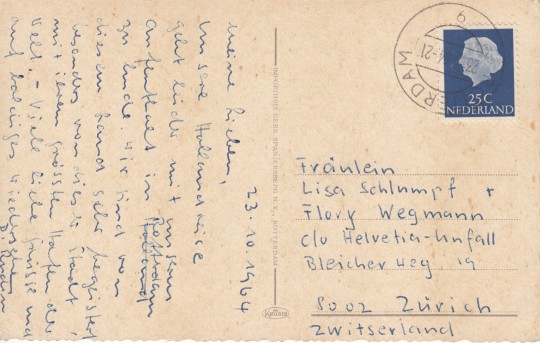 23.10.1964
Meine Lieben,
Unsere Hollandreise
geht leider mit unserm
Aufenthalt in Rotterdam
zu Ende. Wir sind von
diesem Land sehr begeistert
besonders von dieser Stadt,
mit ihrem grössten Hafen der
Welt. – Viele liebe Grüsse und
auf baldiges Wiedersehen
ERDAM
25C
NEDERLAND
Fräulein
Lisa Schlumpf +
Flory Wegmann
c/o Helvetia-Unfall
Bleicherweg 19
8002 Zürich
Zwitserland